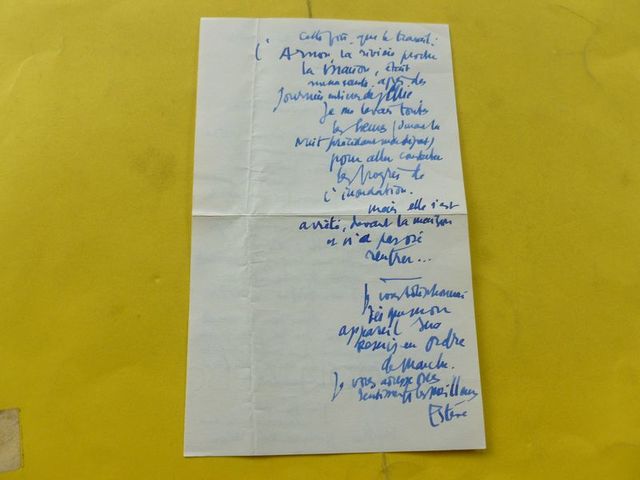 cette fois, que le travail.
L'Arnon la rivière proche
la maison, était
menaçante après des
Journées entières de pluie
Je me levais toutes
les heures (durant la
nuit précédant mon départ)
pour aller constater
les progrès de
l'inondation.
mais elle s'est
arrêtée, devant la maison
et n'a pas osé
rentrer...
Je vous téléphonerai
dès que mon
appareil sera
remis en ordre
de marche.
Je vous adresse mes
sentiments les meilleurs
Estève